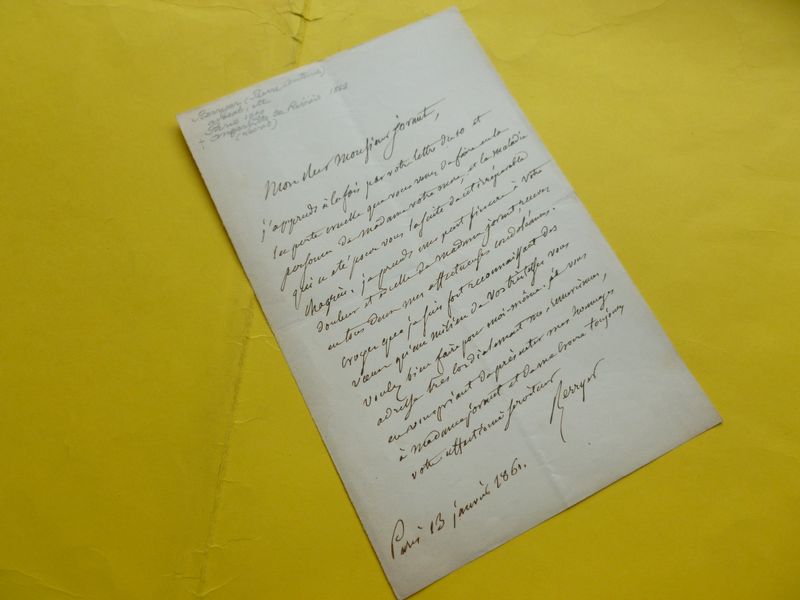 Berryer (Pierre Antoine)
avocat, etc
Paris 1790
+ Augerville la Rivière 1868
(Loiret)
Mon cher Monsieur jorant,
j'apprends à la fois par votre lettre du 10 et
la perte cruelle que vous venez de faire en la
personne de madame votre mère, et la maladie
qui a été pour vous la suite de cet irréparable
chagrin. je prends une part sincère à votre
douleur et à celle de madame jorant, recevez
en tous deux mes affectueuses condoléances.
croyez que je suis fort reconnaissant des
vœux qu'au milieu de vos tristesses vous
voulez bien faire pour moi-même. je vous
adresse très cordialement mes remerciemens,
en vous priant de présenter mes hommages
à madame jorant et de me croire toujours
votre affectionné serviteur
Berryer
Paris 13 janvier 1861.